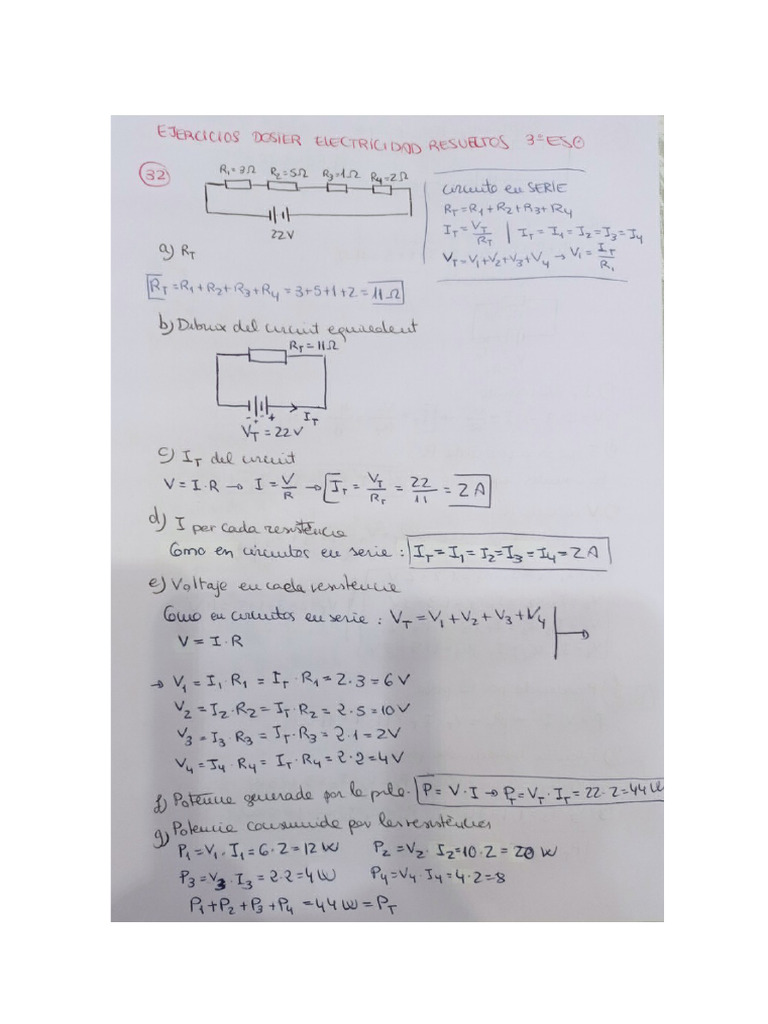 EJERCICIOS DOSIER ELECTRICIDAD RESUELTOS 3ºESO
32
R1=3Ω R2=5Ω R3=1Ω R4=2Ω
22V
circuito en SERIE
RT=R1+R2+R3+R4
IT=VT/RT | IT=I1=I2=I3=I4
VT=V1+V2+V3+V4→V1=IT/R1
a) RT
RT=R1+R2+R3+R4=3+5+1+2=11Ω
b) Dibuix del circuit equivalent
RT=11Ω
- + IT
VT=22V
c) IT del circuit
V=I·R→I=V/R→IT=VT/RT=22/11=2A
d) I per cada resistència
Como en circuitos en serie: IT=I1=I2=I3=I4=2A
e) Voltaje en cada resistencia
Como en circuitos en serie: VT=V1+V2+V3+V4 →
V=I·R
→ V1=I1·R1=IT·R1=2·3=6V
V2=I2·R2=IT·R2=2·5=10V
V3=I3·R3=IT·R3=2·1=2V
V4=I4·R4=IT·R4=2·2=4V
f) Potencia generada por la pila. P=V·I→PT=VT·IT=22·2=44W
g) Potencia consumida por las resistencias
P1=V1·I1=6·2=12W P2=V2·I2=10·2=20W
P3=V3·I3=2·2=4W P4=V4·I4=4·2=8
P1+P2+P3+P4=44W=PT